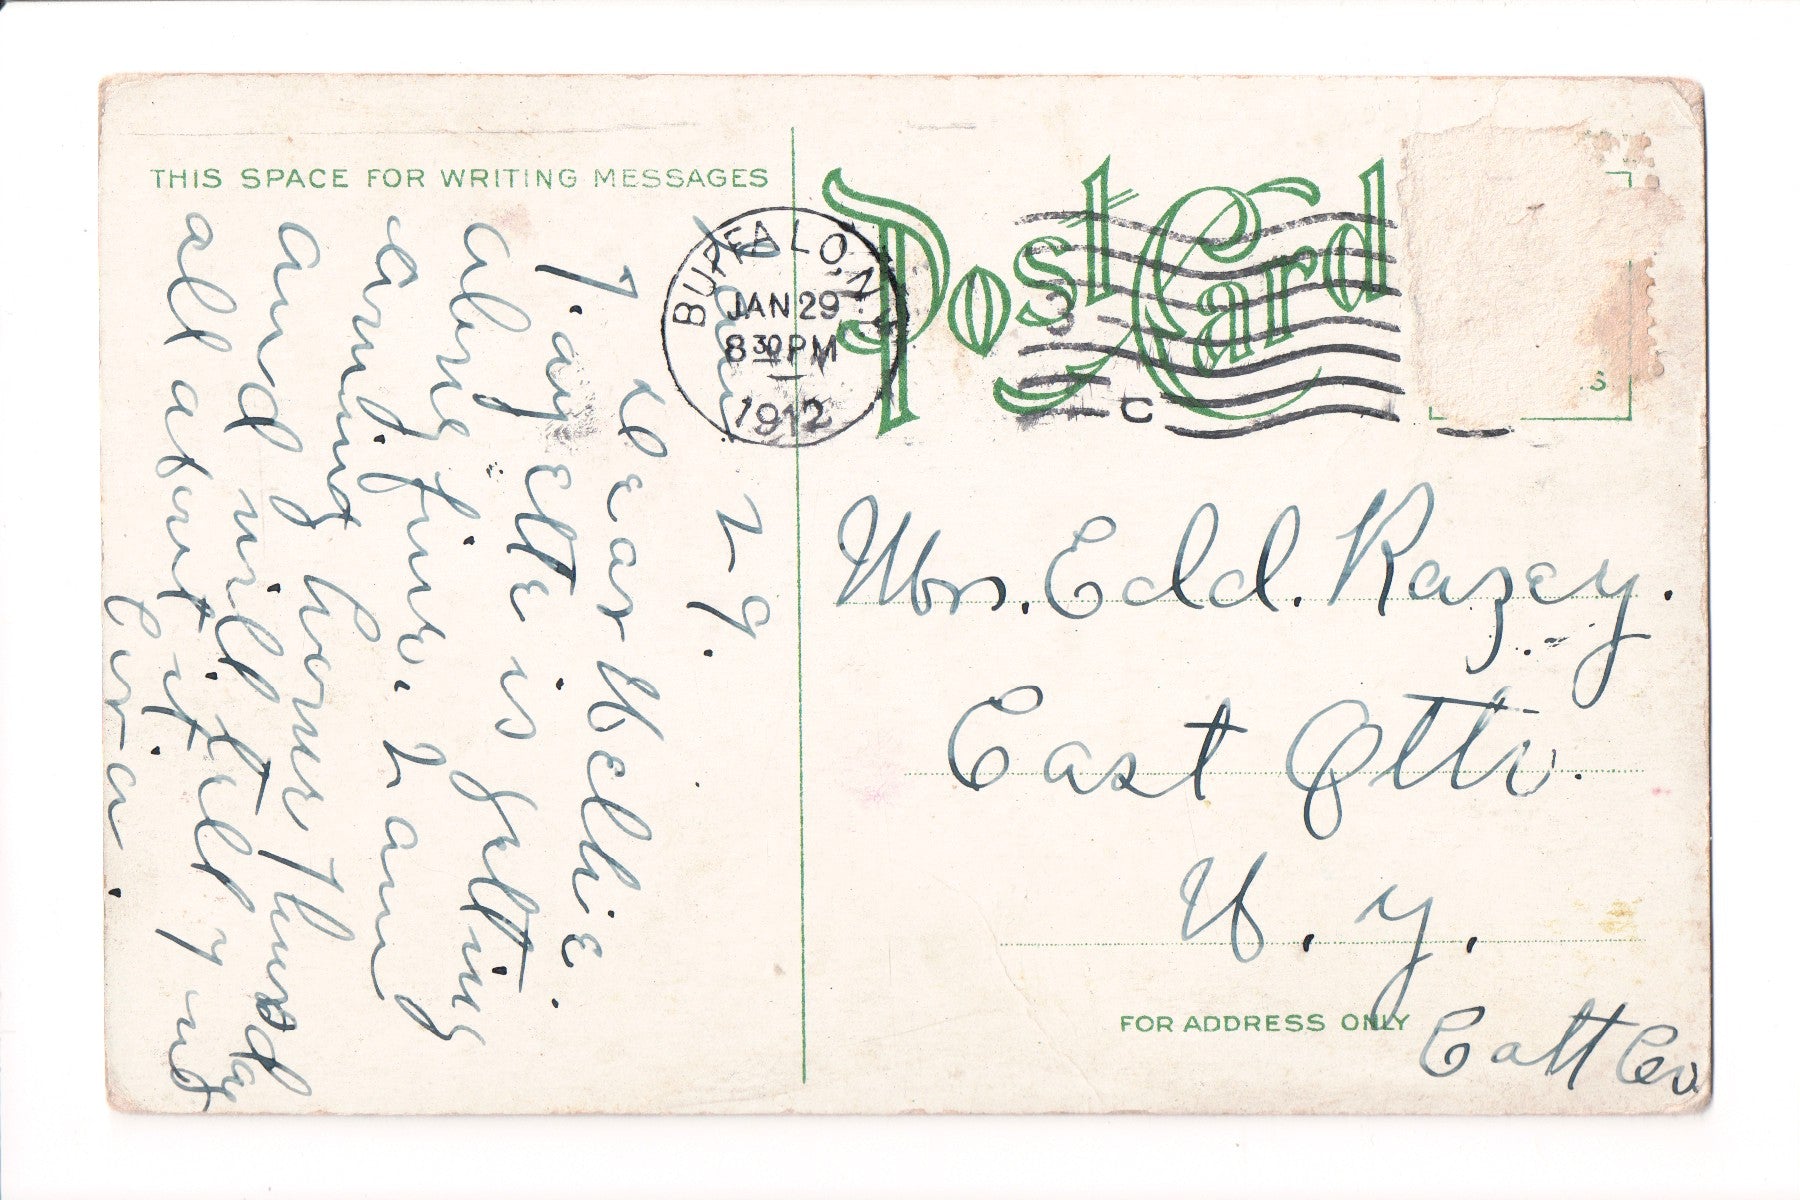 THIS SPACE FOR WRITING MESSAGES
Post Card
BUFFALO, N.Y.
JAN 29
8 30 PM
1912
C
Jan 29.
Dear Nellie.
Fayette is getting
along fine. I am
coming home Thursday
and will tell you
all about it
Mrs. Edd. Razey.
East Otto.
N. Y.
Catt Co.
FOR ADDRESS ONLY